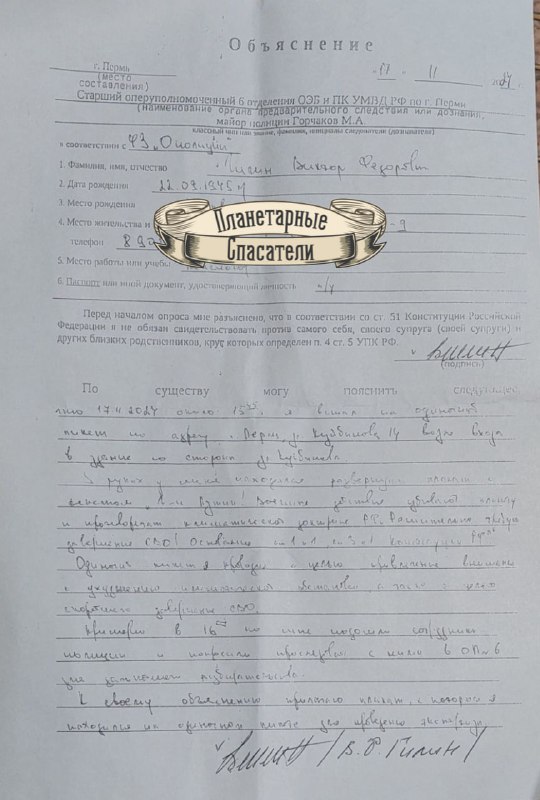 Объяснение
г. Пермь
«17» 11 2024
(место
составления)
Старший оперуполномоченный 6 отделения ОЭБ и ПК УМВД РФ по г. Перми
(наименование органа предварительного следствия или дознания,
майор полиции Горчаков М.А.
классный чин или звание, фамилия, инициалы следователя (дознавателя)
в соответствии с ФЗ "О полиции"
1. Фамилия, имя, отчество Гилин Виктор Федорович
2. Дата рождения 22.09.1945
3. Место рождения
4. Место жительства и
телефон
5. Место работы или учебы
6. Паспорт или иной документ, удостоверяющий личность
Планетарные
Спасатели
Перед началом опроса мне разъяснено, что в соответствии со ст. 51 Конституции Российской
Федерации я не обязан свидетельствовать против самого себя, своего супруга (своей супруги) и
других близких родственников, круг которых определен п. 4 ст. 5 УПК РФ.
(подпись)
По существу могу пояснить следующее
что 17.11.2024 около я встал на одиночный
пикет по адресу г. Пермь, ул. Куйбышева 14 возле входа
в здание со стороны ул. Куйбышева
В руках у меня находился развернутый плакат с
Военные действия убивают планету
и противоречат климатической доктрине РФ. Решительно требую
завершения СВО! Основание Конституции РФ
Одиночный пикет я проводил с целью привлечения внимания
к ухудшению климатической обстановки, а также с целью
скорейшего завершения СВО.
Примерно в 16 ко мне подошли сотрудники
полиции и попросили проследовать с ними в ОП №6
для дальнейшего разбирательства.
К своему объяснению прилагаю плакат, с которым я
находился на одиночном пикете для проведения экспертизы.
/В.Ф. Гилин/